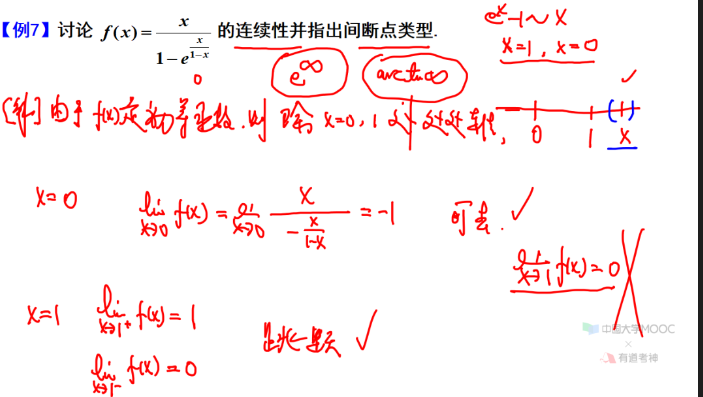 【例7】讨论 f(x) = x / (1 - e^{x/(1-x)}) 的连续性并指出间断点类型.
e^x - 1 ~ X
x=1, x=0
0
e^∞
arctan∞
[解] 由于 f(x) 是初等函数, 则 除 x=0, 1 外 处处连续,
0 1 x
x=0 lim_{x→0} f(x) = lim_{x→0} x / (- x/(1-x)) = -1 可去. ✓
lim_{x→1} f(x) = 0
x=1 lim_{x→1+} f(x) = 1
跳跃 ✓
lim_{x→1-} f(x) = 0
中国大学MOOC
×
有道考神